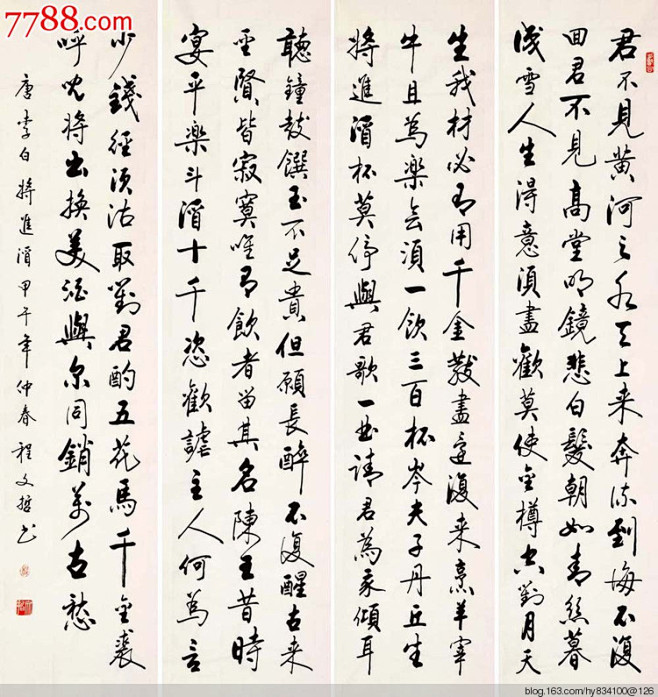 7788.com
君不見黃河之水天上来奔流到海不復
回君不見高堂明鏡悲白髮朝如青絲暮
成雪人生得意須盡歡莫使金樽空對月天
生我材必有用千金散盡還復来烹羊宰
牛且為樂會須一飲三百杯岑夫子丹丘生
將進酒杯莫停與君歌一曲請君為我傾耳
聽鐘鼓饌玉不足貴但願長醉不復醒古来
聖賢皆寂寞唯有飲者留其名陳王昔時
宴平樂斗酒十千恣歡謔主人何為言
少錢徑須沽取對君酌五花馬千金裘
呼児將出換美酒與尔同銷萬古愁
唐李白將進酒甲午年仲春程文哲書
blog.163.com/hy834100@126